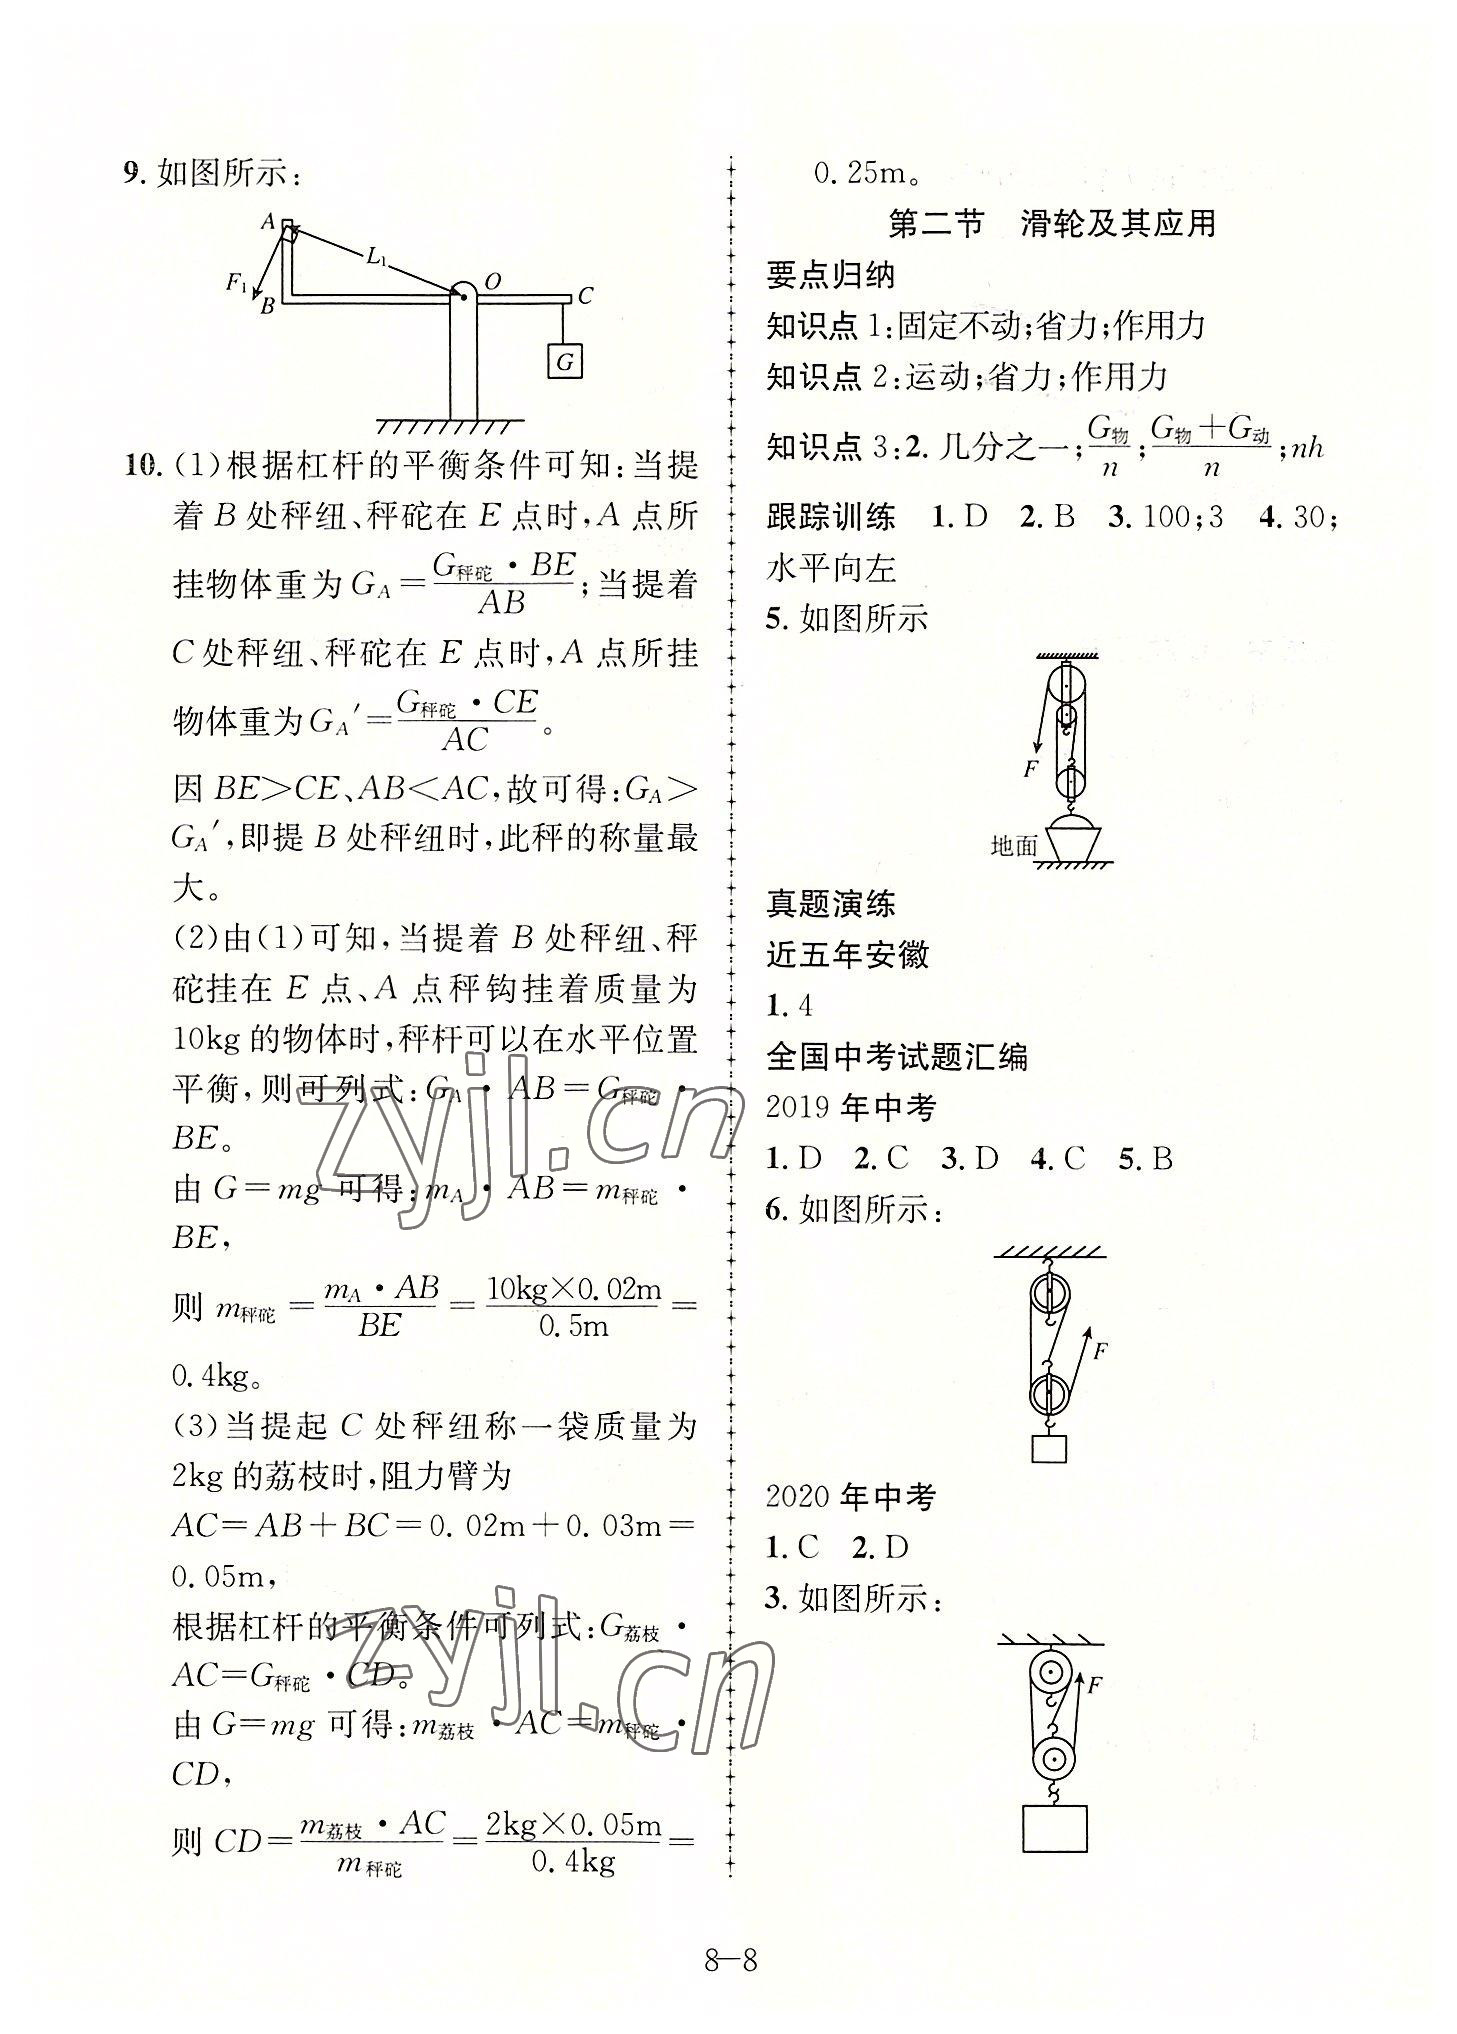 9. 如图所示:
A
L₁
F₁
B
O
C
G
10. (1)根据杠杆的平衡条件可知:当提
着 B 处秤纽、秤砣在 E 点时,A 点所
挂物体重为 G_A=G秤砣·BE/AB;当提着
C 处秤纽、秤砣在 E 点时,A 点所挂
物体重为 G_A′=G秤砣·CE/AC。
因 BE>CE、AB<AC,故可得:G_A>
G_A′,即提 B 处秤纽时,此秤的称量最
大。
(2)由(1)可知,当提着 B 处秤纽、秤
砣挂在 E 点、A 点秤钩挂着质量为
10kg 的物体时,秤杆可以在水平位置
平衡,则可列式:G_A·AB=G秤砣·
BE。
由 G=mg 可得:m_A·AB=m秤砣·
BE,
则 m秤砣=m_A·AB/BE=10kg×0.02m/0.5m=
0.4kg。
(3)当提起 C 处秤纽称一袋质量为
2kg 的荔枝时,阻力臂为
AC=AB+BC=0.02m+0.03m=
0.05m,
根据杠杆的平衡条件可列式:G荔枝·
AC=G秤砣·CD。
由 G=mg 可得:m荔枝·AC=m秤砣·
CD,
则 CD=m荔枝·AC/m秤砣=2kg×0.05m/0.4kg=
0.25m。
第二节 滑轮及其应用
要点归纳
知识点 1:固定不动;省力;作用力
知识点 2:运动;省力;作用力
知识点 3:2. 几分之一;G物/n;(G物+G动)/n;nh
跟踪训练 1. D 2. B 3. 100;3 4. 30;
水平向左
5. 如图所示
F
地面
真题演练
近五年安徽
1. 4
全国中考试题汇编
2019 年中考
1. D 2. C 3. D 4. C 5. B
6. 如图所示:
F
2020 年中考
1. C 2. D
3. 如图所示:
F
8—8
zyjl.cn
zyjl.cn